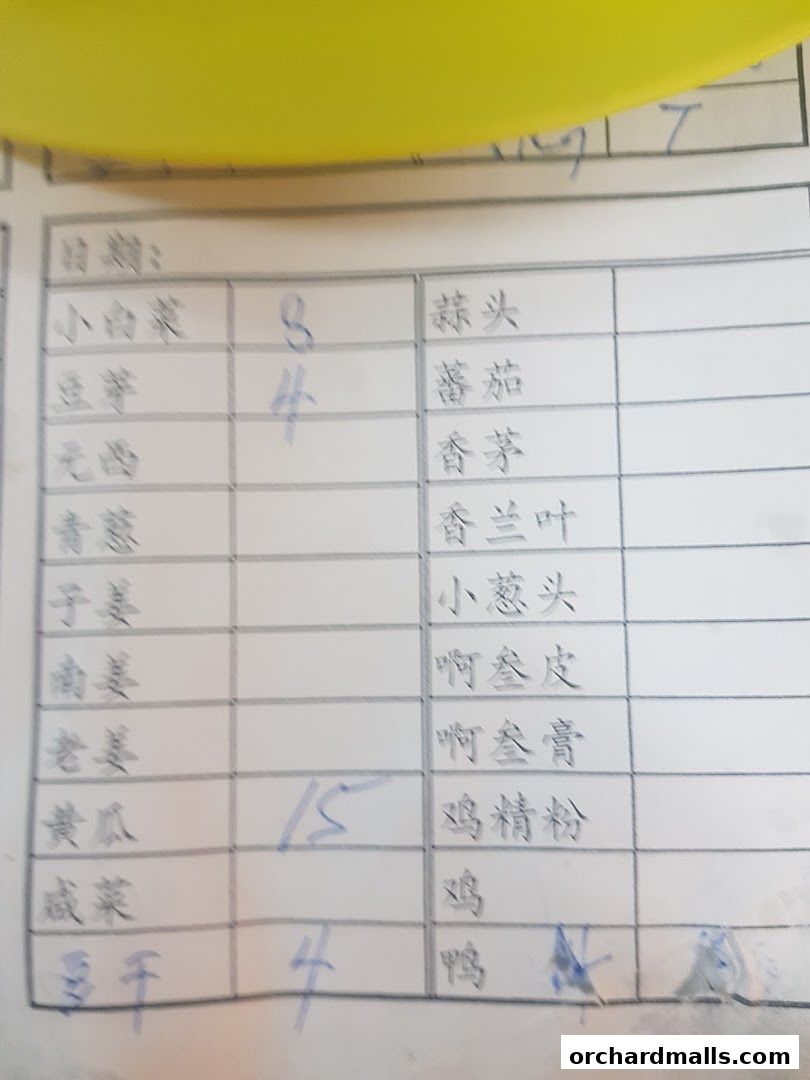 T
日期:
小白菜 8 蒜头
豆芽 4 蕃茄
元西 香茅
青葱 香兰叶
子姜 小葱头
南姜 啊叁皮
老姜 啊叁膏
黄瓜 15 鸡精粉
咸菜 鸡
豆干 4 鸭
orchardmalls.com